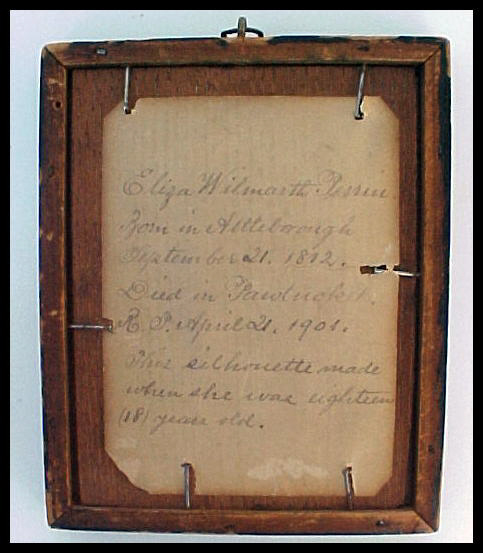 Eliza Wilmarth Perrin
Born in Attleborough
September 21. 1812.
Died in Pawtucket.
R. I. April 21, 1901.
This silhouette made
when she was eighteen
(18) years old.